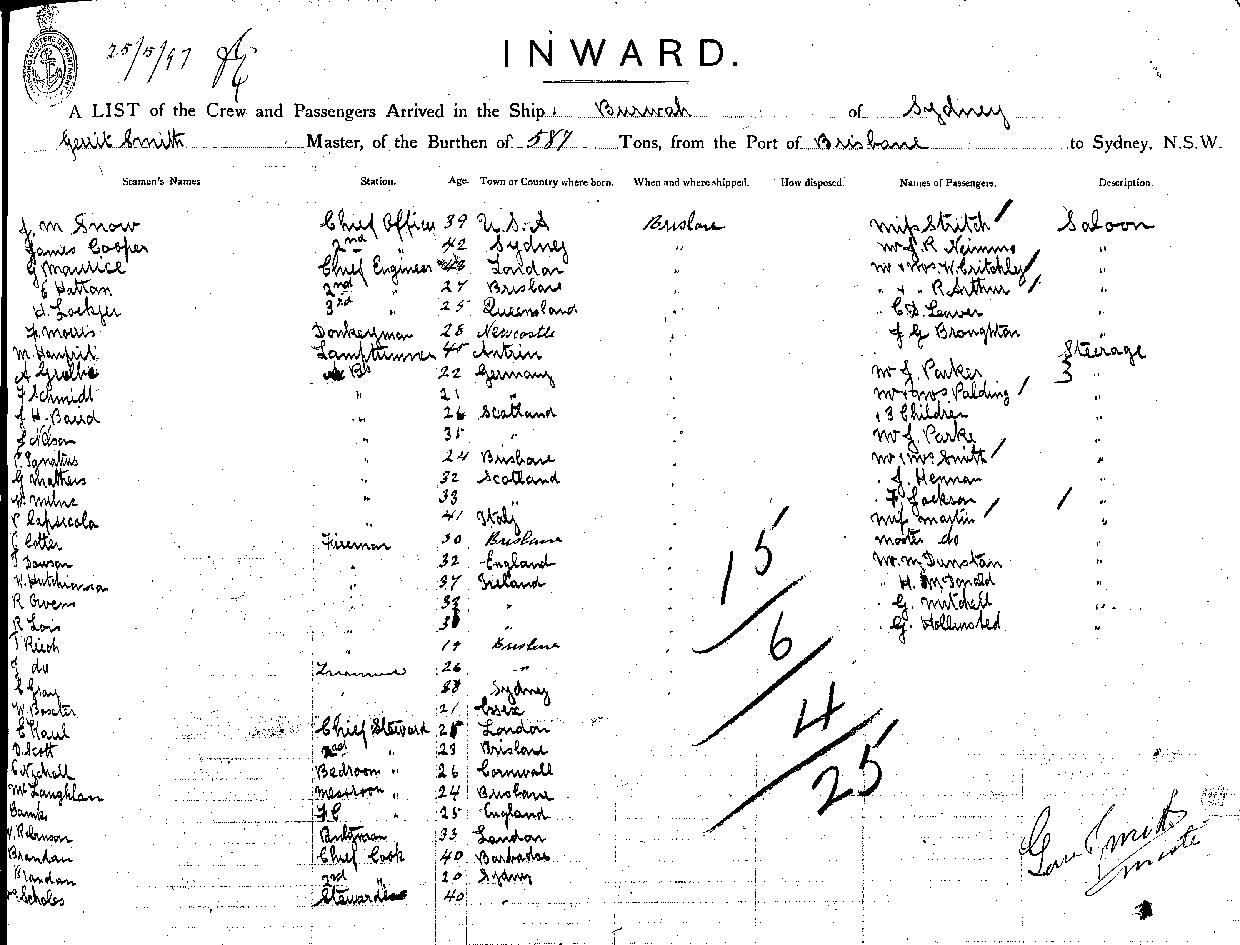 25/5/97
INWARD.
A LIST of the Crew and Passengers Arrived in the Ship Burwah of Sydney
Gerrit Smith Master, of the Burthen of 587 Tons, from the Port of Brisbane to Sydney, N.S.W.
Seamen's Names Station. Age. Town or Country where born. When and where shipped. How disposed. Names of Passengers. Description.
J. M Snow Chief Officer 39 U.S.A Brisbane Miss Stritch Saloon
James Cooper 2nd 42 Sydney " Mr J R Nimmo "
G Maurice Chief Engineer London " Mr & Mrs W. Critchley "
E Hattan 2nd " 27 Brisbane " " " " R Arthur "
H. Lockyer 3rd " 25 Queensland " " C D Leaver "
F. Morris Donkeyman 28 Newcastle " " J G Broughton "
M. Lamptrimmer 45 Antrim " Steerage
A 22 Germany " Mr J. Parker "
F Schmidt " 21 " " Mr & Mrs Palding "
J. H. Baird " 26 Scotland " 3 Children "
J Nelson " 35 " " Mr J. Parke "
Ignatius " 24 Brisbane " Mr & Mrs Smith "
G Mathers " 32 Scotland " " J. Herman "
W. Milne " 33 " " " F. Jackson "
P Capsicola " 41 Italy " Miss Martin "
J Cotter Fireman 30 Brisbane " Master do "
J Dawson " 32 England " Mr M Dunstan "
W. Hutchinson " 37 Ireland " " H. McDonald "
R Owens " " " " G. Mitchell "
R Lois " " " " G. Hollinsted "
J Rich " 19 Brisbane "
J do Trimmer 26 " "
E Gray " Sydney "
W. Baxter 21 Essex "
E Kaul Chief Steward London "
D. Scott 2nd " 23 Brisbane "
Nychall Bedroom " 26 Cornwall "
McLaughlan Messroom " 24 Brisbane "
Banks F.C " 25 England "
Robinson Pantryman 33 London "
Brandan Chief Cook 40 Barbados "
Brandan 2nd " 20 Sydney "
Scholes Stewardess 40 "
15
6
4
25
Smith
Master